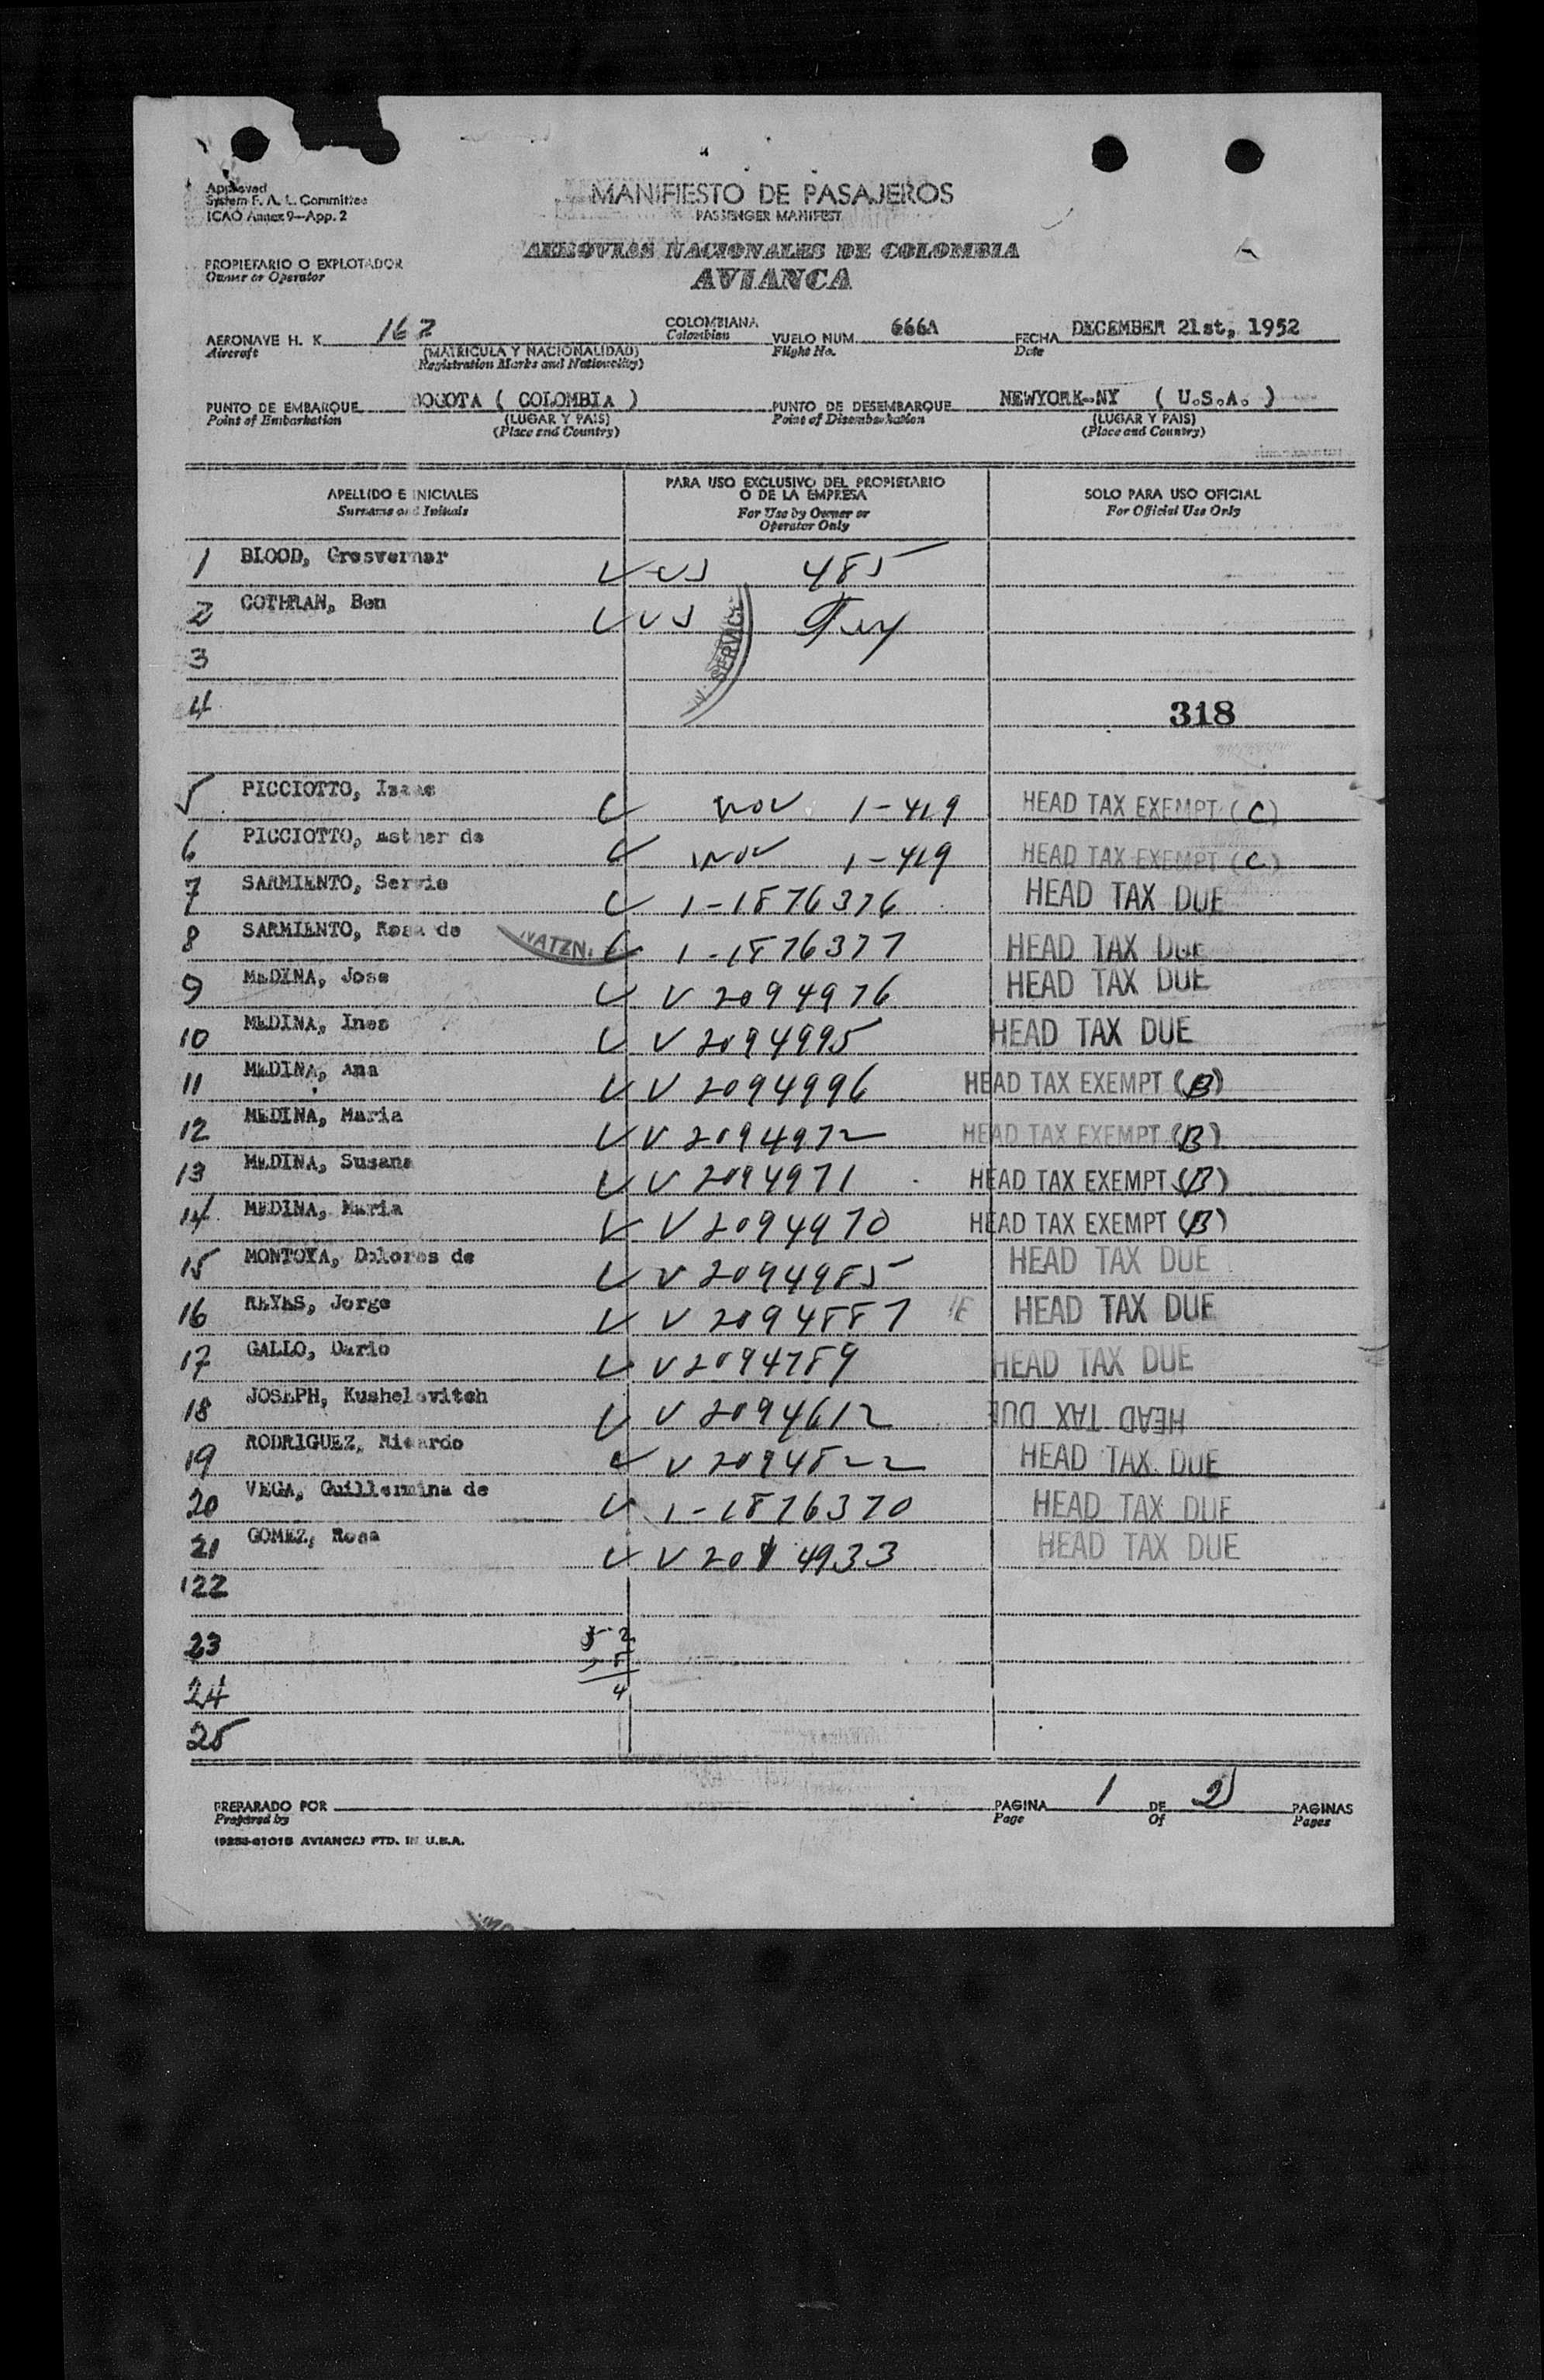 Approved
System F. A. L. Committee
ICAO Annex 9—App. 2
MANIFIESTO DE PASAJEROS
PASSENGER MANIFEST
AEROVIAS NACIONALES DE COLOMBIA
AVIANCA
PROPIETARIO O EXPLOTADOR
Owner or Operator
AERONAVE H. K. 167 COLOMBIANA VUELO NUM. 666A FECHA DECEMBER 21st, 1952
Aircraft (MATRICULA Y NACIONALIDAD) Colombian Flight No. Date
(Registration Marks and Nationality)
PUNTO DE EMBARQUE BOGOTA ( COLOMBIA ) PUNTO DE DESEMBARQUE NEWYORK-NY ( U.S.A. )
Point of Embarkation (LUGAR Y PAIS) Point of Disembarkation (LUGAR Y PAIS)
(Place and Country) (Place and Country)
APELLIDO E INICIALES PARA USO EXCLUSIVO DEL PROPIETARIO O DE LA EMPRESA SOLO PARA USO OFICIAL
Surname and Initials For Use by Owner or Operator Only For Official Use Only
1 BLOOD, Grosvernor US 485
2 COTHRAN, Ben US
SERVICE
3
4 318
5 PICCIOTTO, Isaac 1-419 HEAD TAX EXEMPT (C)
6 PICCIOTTO, Esther de 1-419 HEAD TAX EXEMPT (C)
7 SARMIENTO, Servio 1-1876376 HEAD TAX DUE
8 SARMIENTO, Rosa de NATZN. 1-1876377 HEAD TAX DUE
9 MEDINA, Jose V 2094976 HEAD TAX DUE
10 MEDINA, Ines V 2094995 HEAD TAX DUE
11 MEDINA, Ana V 2094996 HEAD TAX EXEMPT (B)
12 MEDINA, Maria V 2094972 HEAD TAX EXEMPT (B)
13 MEDINA, Susana V 2094971 HEAD TAX EXEMPT (B)
14 MEDINA, Maria V 2094970 HEAD TAX EXEMPT (B)
15 MONTOYA, Dolores de V 2094985 HEAD TAX DUE
16 REYES, Jorge V 2094887 HEAD TAX DUE
17 GALLO, Dario V 2094789 HEAD TAX DUE
18 JOSEPH, Kushelovitch V 2094612 HEAD TAX DUE
19 RODRIGUEZ, Ricardo V 2094822 HEAD TAX DUE
20 VEGA, Guillermina de 1-1876370 HEAD TAX DUE
21 GOMEZ, Rosa V 2014933 HEAD TAX DUE
22
23
24
25
PREPARADO POR PAGINA 1 DE 2 PAGINAS
Prepared by Page Of Pages
AVIANCA) PTD. IN U.S.A.